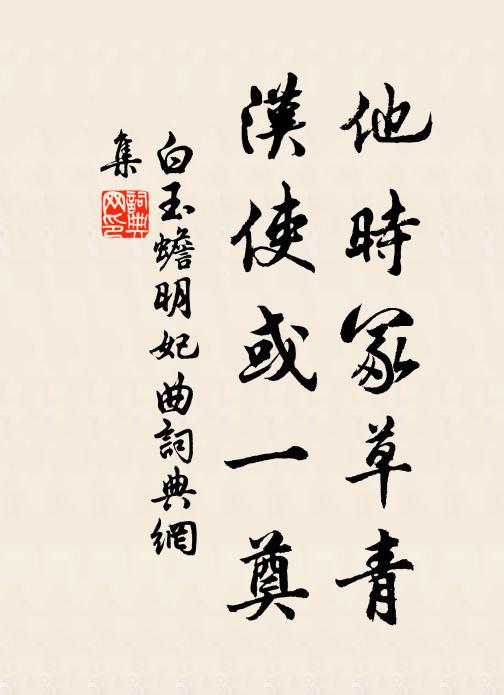 他時冢草青
漢使或一奠
白玉蟾明妃曲詞典網
集
詞典
网印